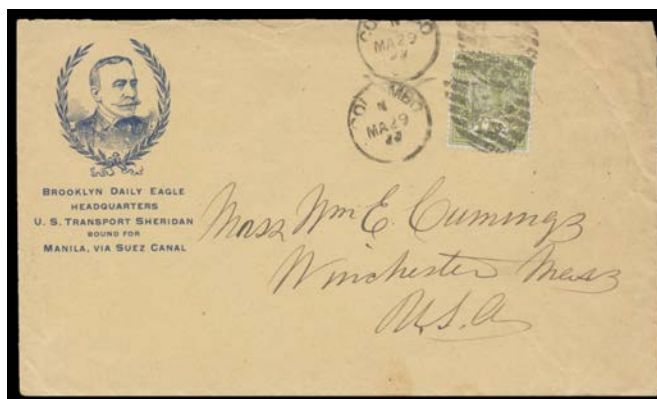 BROOKLYN DAILY EAGLE
HEADQUARTERS
U. S. TRANSPORT SHERIDAN
BOUND FOR
MANILA, VIA SUEZ CANAL
COLOMBO
N
MA 29
99
COLOMBO
N
MA 29
99
Wm E. Cummings
Winchester Mass
U.S.A